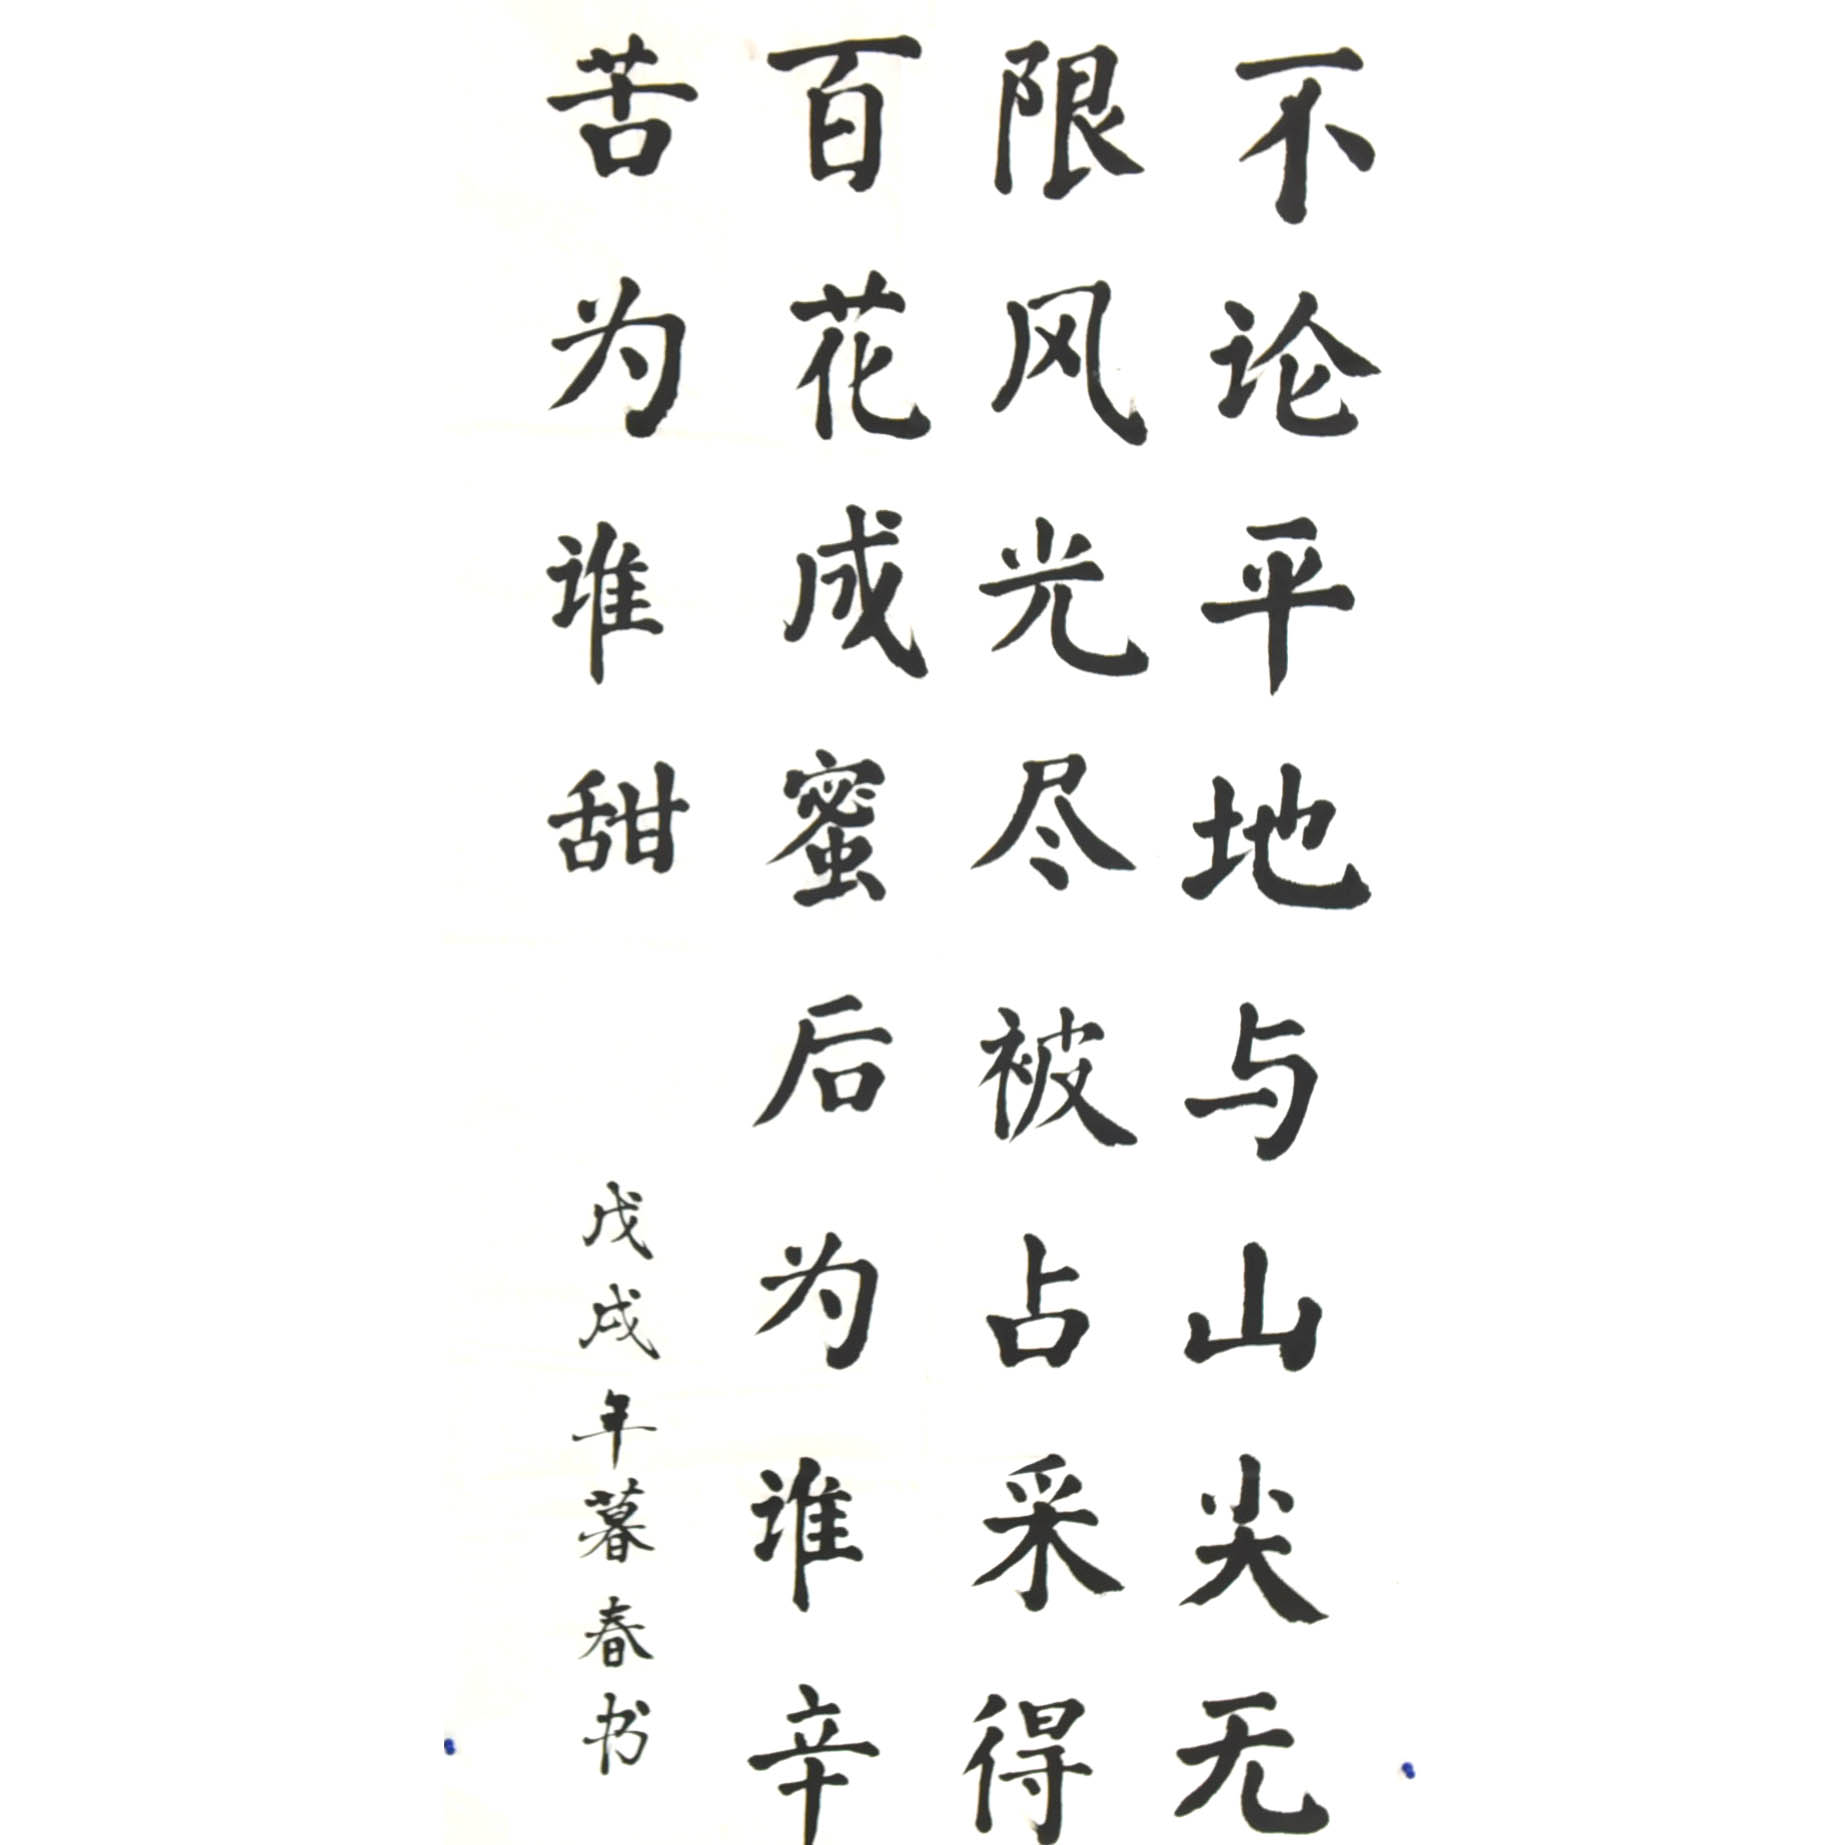 不论平地与山尖无
限风光尽被占采得
百花成蜜后为谁辛
苦为谁甜
戊戌年暮春书